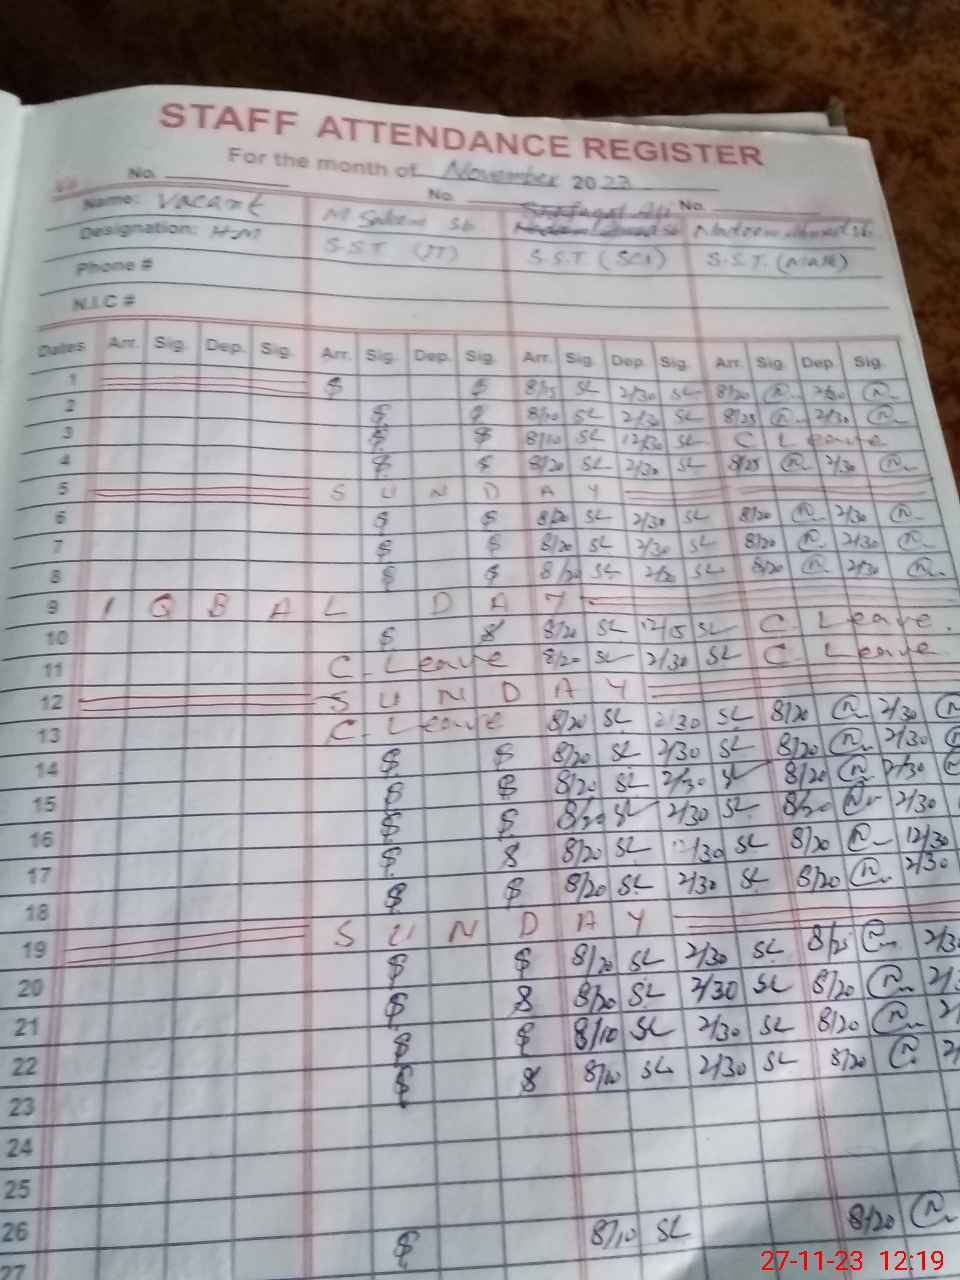 STAFF ATTENDANCE REGISTER
For the month of November 2023
No. No. No.
Name: Vacant M Saleem Sb Nadeem Ahmed Sb
Designation: HM S.S.T (IT) S.S.T (SCI) S.S.T. (Math)
Phone #
N.I.C #
Dates Arr. Sig. Dep. Sig. Arr. Sig. Dep. Sig. Arr. Sig. Dep. Sig. Arr. Sig. Dep Sig.
1 $ $ 8/15 SL 2/30 SL 8/20 n 2/30 n
2 $ $ 8/10 SL 2/30 SL 8/25 n 2/30 n
3 $ $ 8/10 SL 12/30 SL C Leave
4 $ $ 8/20 SL 2/30 SL 8/25 n 2/30 n
5 SUNDAY
6 $ $ 8/20 SL 2/30 SL 8/20 n 2/30 n
7 $ $ 8/20 SL 2/30 SL 8/20 n 2/30 n
8 $ $ 8/20 SL SL 8/20 n 2/30 n
9 IQBAL DAY
10 $ $ 8/20 SL 12/15 SL C. Leave.
11 C. Leave 8/20 SL 2/30 SL C. Leave.
12 SUNDAY
13 C. Leave 8/20 SL 2/30 SL 8/20 n 2/30 n
14 $ $ 8/20 SL 2/30 SL 8/20 n 2/30 n
15 $ $ 8/20 SL 2/30 SL 8/20 n 2/30
16 $ $ 8/20 SL 2/30 SL 8/20 n 2/30
17 $ $ 8/20 SL 12/30 SL 8/20 n 12/30
18 $ $ 8/20 SL 2/30 SL 8/20 n 2/30
19 SUNDAY
20 $ $ 8/20 SL 2/30 SL 8/25 n
21 $ $ 8/20 SL 2/30 SL 8/20 n
22 $ $ 8/10 SL 2/30 SL 8/20 n
23 $ $ 8/10 SL 2/30 SL 8/20 n
24
25
26
27 $ 8/10 SL 8/20 n
27-11-23 12:19